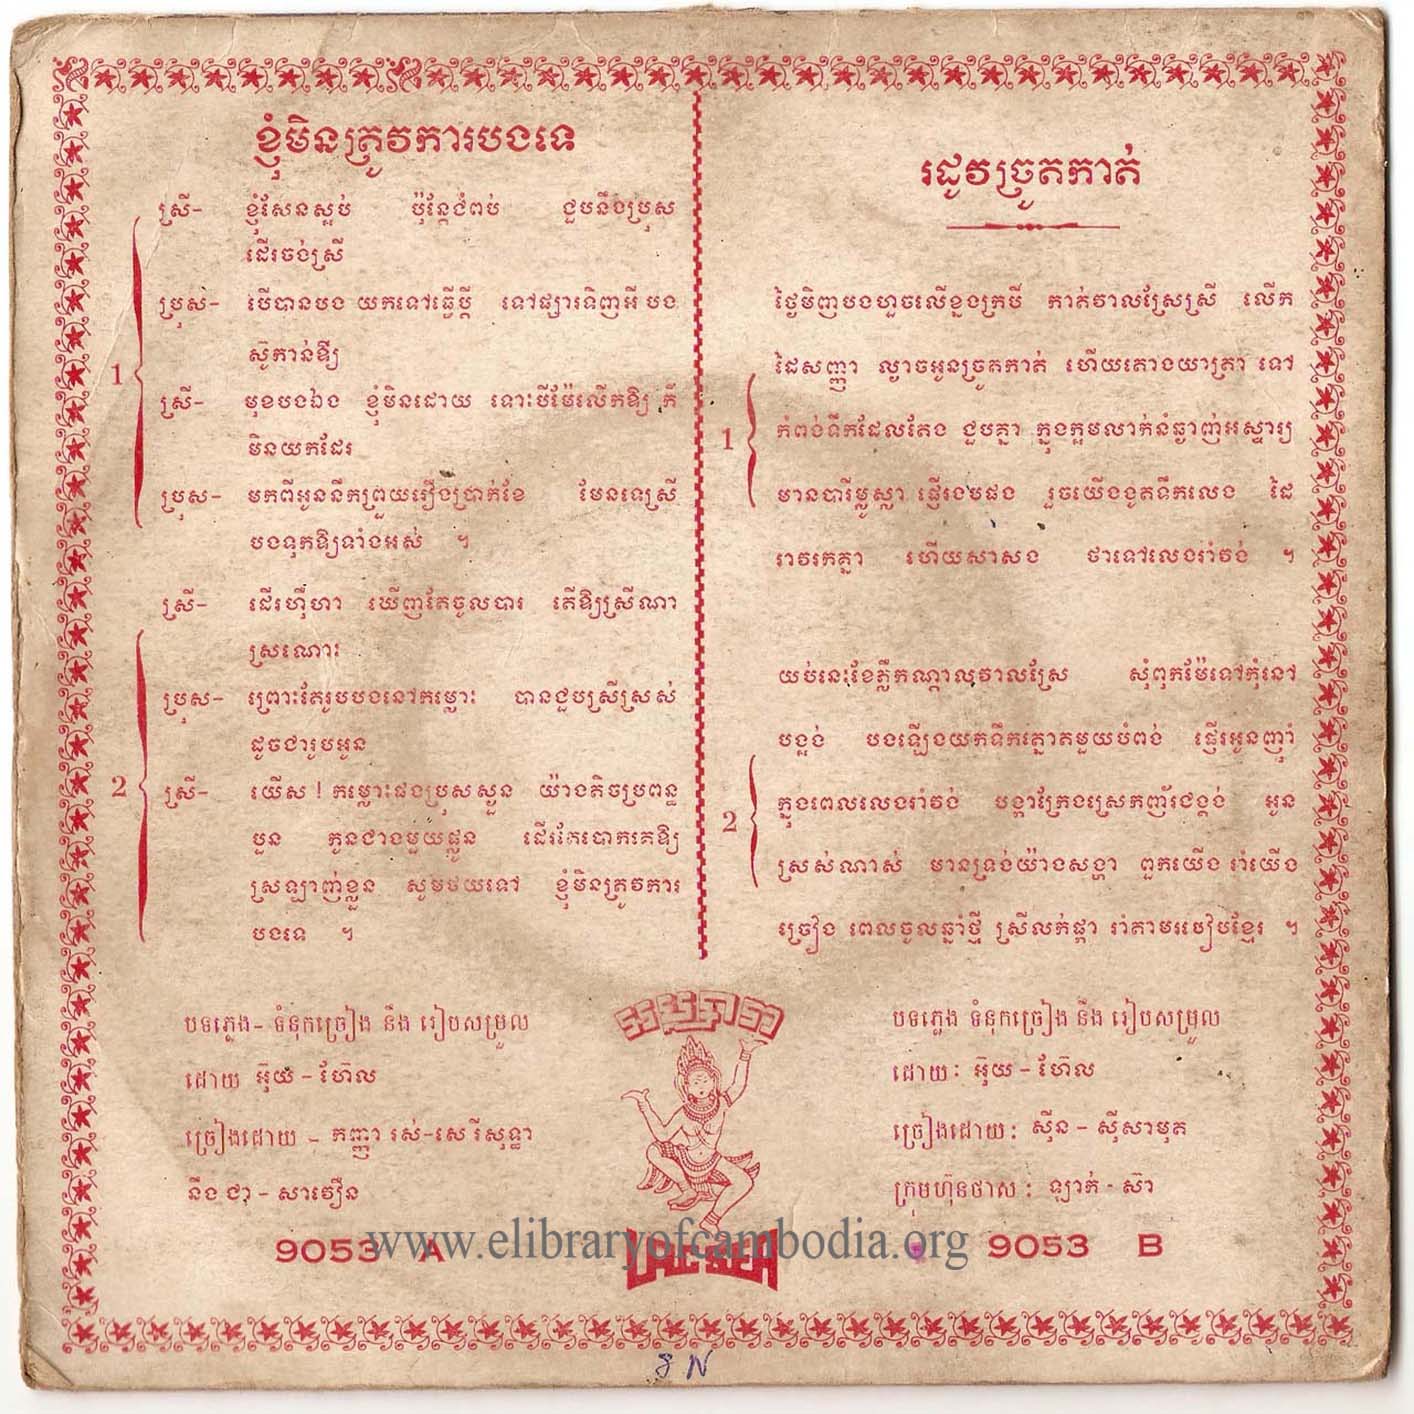 ខ្ញុំមិនត្រូវការបងទេ
ស្រី- ខ្ញុំសែនស្អប់ ប៉ុន្តែជំពប់ ជួបនឹងប្រុស
ដើរចង់ស្រី
ប្រុស- បើបានបង យកទៅធ្វើប្ដី ទៅផ្សារទិញអី បង
ស៊ូកាន់ឱ្យ
1
ស្រី- មុខបងឯង ខ្ញុំមិនដោយ ទោះបីម៉ែលើកឱ្យ ក៏
មិនយកដែរ
ប្រុស- មកពីអូននឹកព្រួយរឿងប្រាក់ខែ មែនទេស្រី
បងទុកឱ្យទាំងអស់ ។
ស្រី- ដើរហ៊ឺហា ឃើញតែចូលបារ តើឱ្យស្រីណា
ស្រណោះ
ប្រុស- ព្រោះតែរូបបងនៅកម្លោះ បានជួបស្រីស្រស់
ដូចជារូបអូន
2
ស្រី- យើស ! កម្លោះផងប្រុសស្ងួន យ៉ាងតិចប្រពន្ធ
បួន កូនជាងមួយផ្លូន ដើរតែបោកគេឱ្យ
ស្រឡាញ់ខ្លួន សូមថយទៅ ខ្ញុំមិនត្រូវការ
បងទេ ។
បទភ្លេង- ទំនុកច្រៀង នឹង រៀបសម្រួល
ដោយ អ៊ុយ - ហ៊ែល
ច្រៀងដោយ - កញ្ញា រស់-សេរីសុទ្ធា
នឹង ជា - សាវឿន
9053 A
រដូវច្រូតកាត់
ថ្ងៃមិញបងហួចលើខ្នងក្របី កាត់វាលស្រែស្រី លើក
ដៃសញ្ញា ល្ងាចអូនច្រូតកាត់ ហើយតោងយាត្រា ទៅ
1
កំពង់ទឹកដែលតែង ជួបគ្នា ក្នុងក្អមលាក់នំឆ្ងាញ់អស្ចារ្យ
មានបារីម្លូស្លា ផ្ញើរងបផង រួចយើងងូតទឹកលេង ដៃ
រាវរកគ្នា ហើយសាសង ថាទៅលេងរាំវង់ ។
យប់នេះខែភ្លឺកណ្ដាលវាលស្រែ សុំពុកម៉ែទៅកុំនៅ
បង្អង់ បងឡើងយកទឹកត្នោតមួយបំពង់ ផ្ញើរអូនញ៉ាំ
2
ក្នុងពេលលេងរាំវង់ បង្ហាក្រែងស្រេកញ័រជង្គង់ អូន
ស្រស់ណាស់ មានទ្រង់យ៉ាងសង្ហា ពួកយើង រាំយើង
ច្រៀង ពេលចូលឆ្នាំថ្មី ស្រីលក់ផ្កា រាំតាមរបៀបខ្មែរ ។
បទភ្លេង ទំនុកច្រៀង នឹង រៀបសម្រួល
ដោយ: អ៊ុយ - ហ៊ែល
ច្រៀងដោយ: ស៊ីន - ស៊ីសាមុត
ក្រុមហ៊ុនថាស: ឡាក់ - ស៊ា
9053 B
www.elibraryofcambodia.org